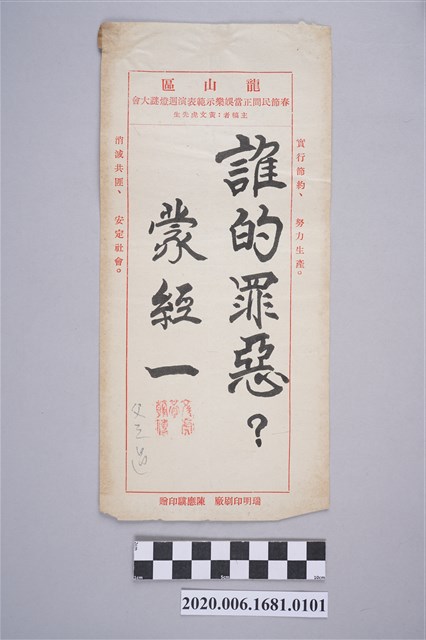 龍山區
春節民間正當娛樂示範表演週燈謎大會
主稿者：黃文虎先生
實行節約、努力生產。
誰的罪惡？
蒙經一
消滅共匪、安定社會。
父之過
瑞明印刷廠 陳應騏印贈
1cm 5cm 10cm
2020.006.1681.0101